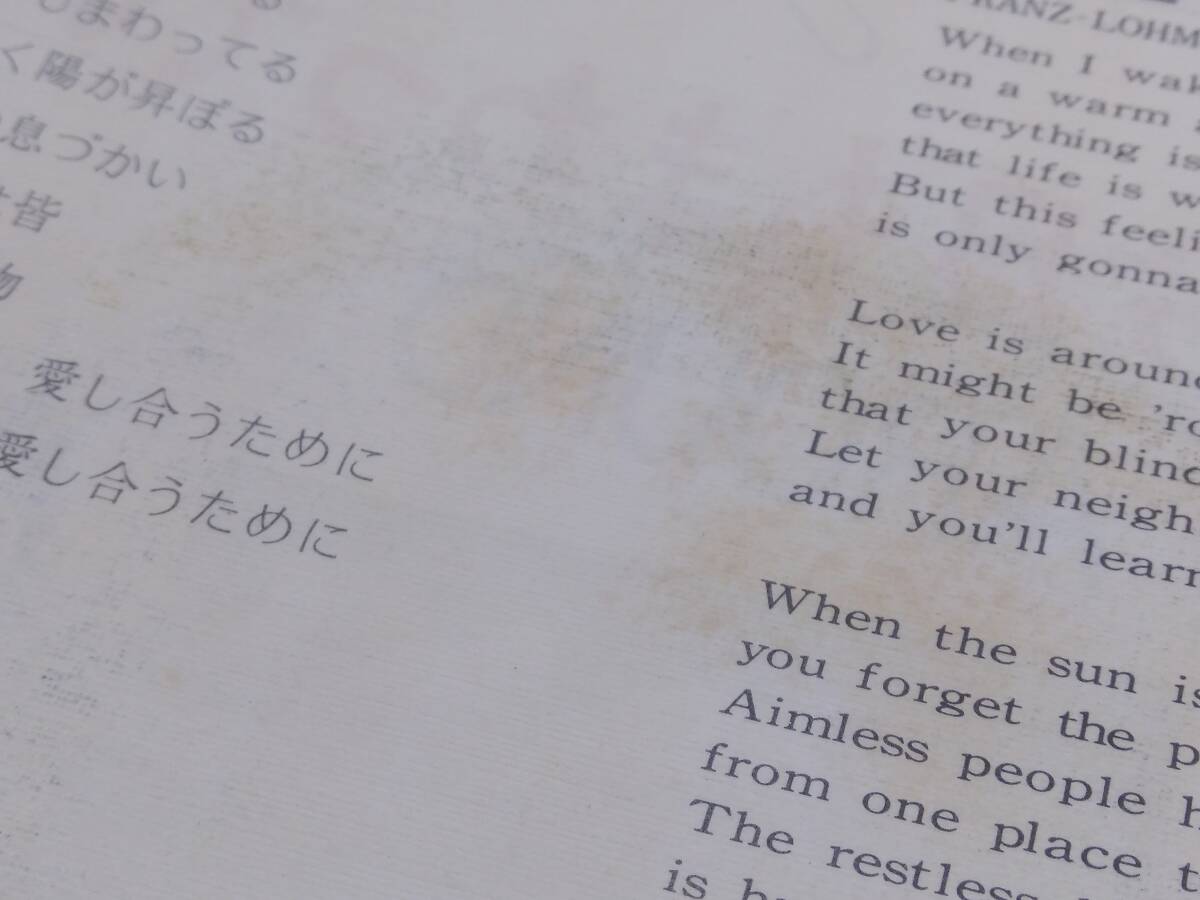 まわってる
く陽が昇ぼる
息づかい
皆
物
愛し合うために
愛し合うために
FRANZ LOHM
When I wak
on a warm
everything is
that life is w
But this feeli
is only gonna
Love is around
It might be 'ro
that your blind
Let your neigh
and you'll learn
When the sun is
you forget the p
Aimless people h
from one place t
The restless
is b